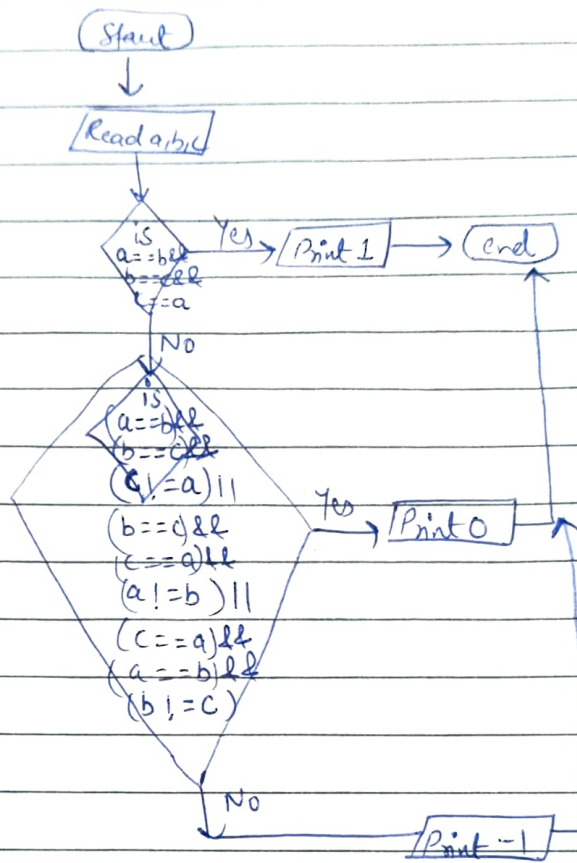 Start
Read a,b,c
is
a==b&&
b==c&&
c==a
Yes
Print 1
end
No
is
(a==b)&&
(b==c)&&
(c!=a)||
(b==c)&&
(c==a)&&
(a!=b)||
(c==a)&&
(a==b)&&
(b!=c)
Yes
Print 0
No
Print -1